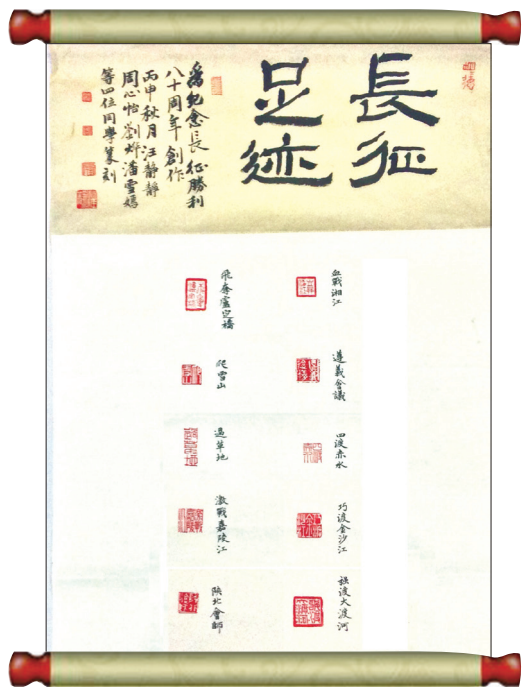 長征
足迹
為紀念長征勝利
八十周年創作
丙申秋月汪静静
周心怡劉烨潘雪
等四位同學篆刻
血戰湘江
遵義會議
四渡赤水
巧渡金沙江
强渡大渡河
飛奪瀘定橋
爬雪山
過草地
激戰嘉陵江
陝北會師